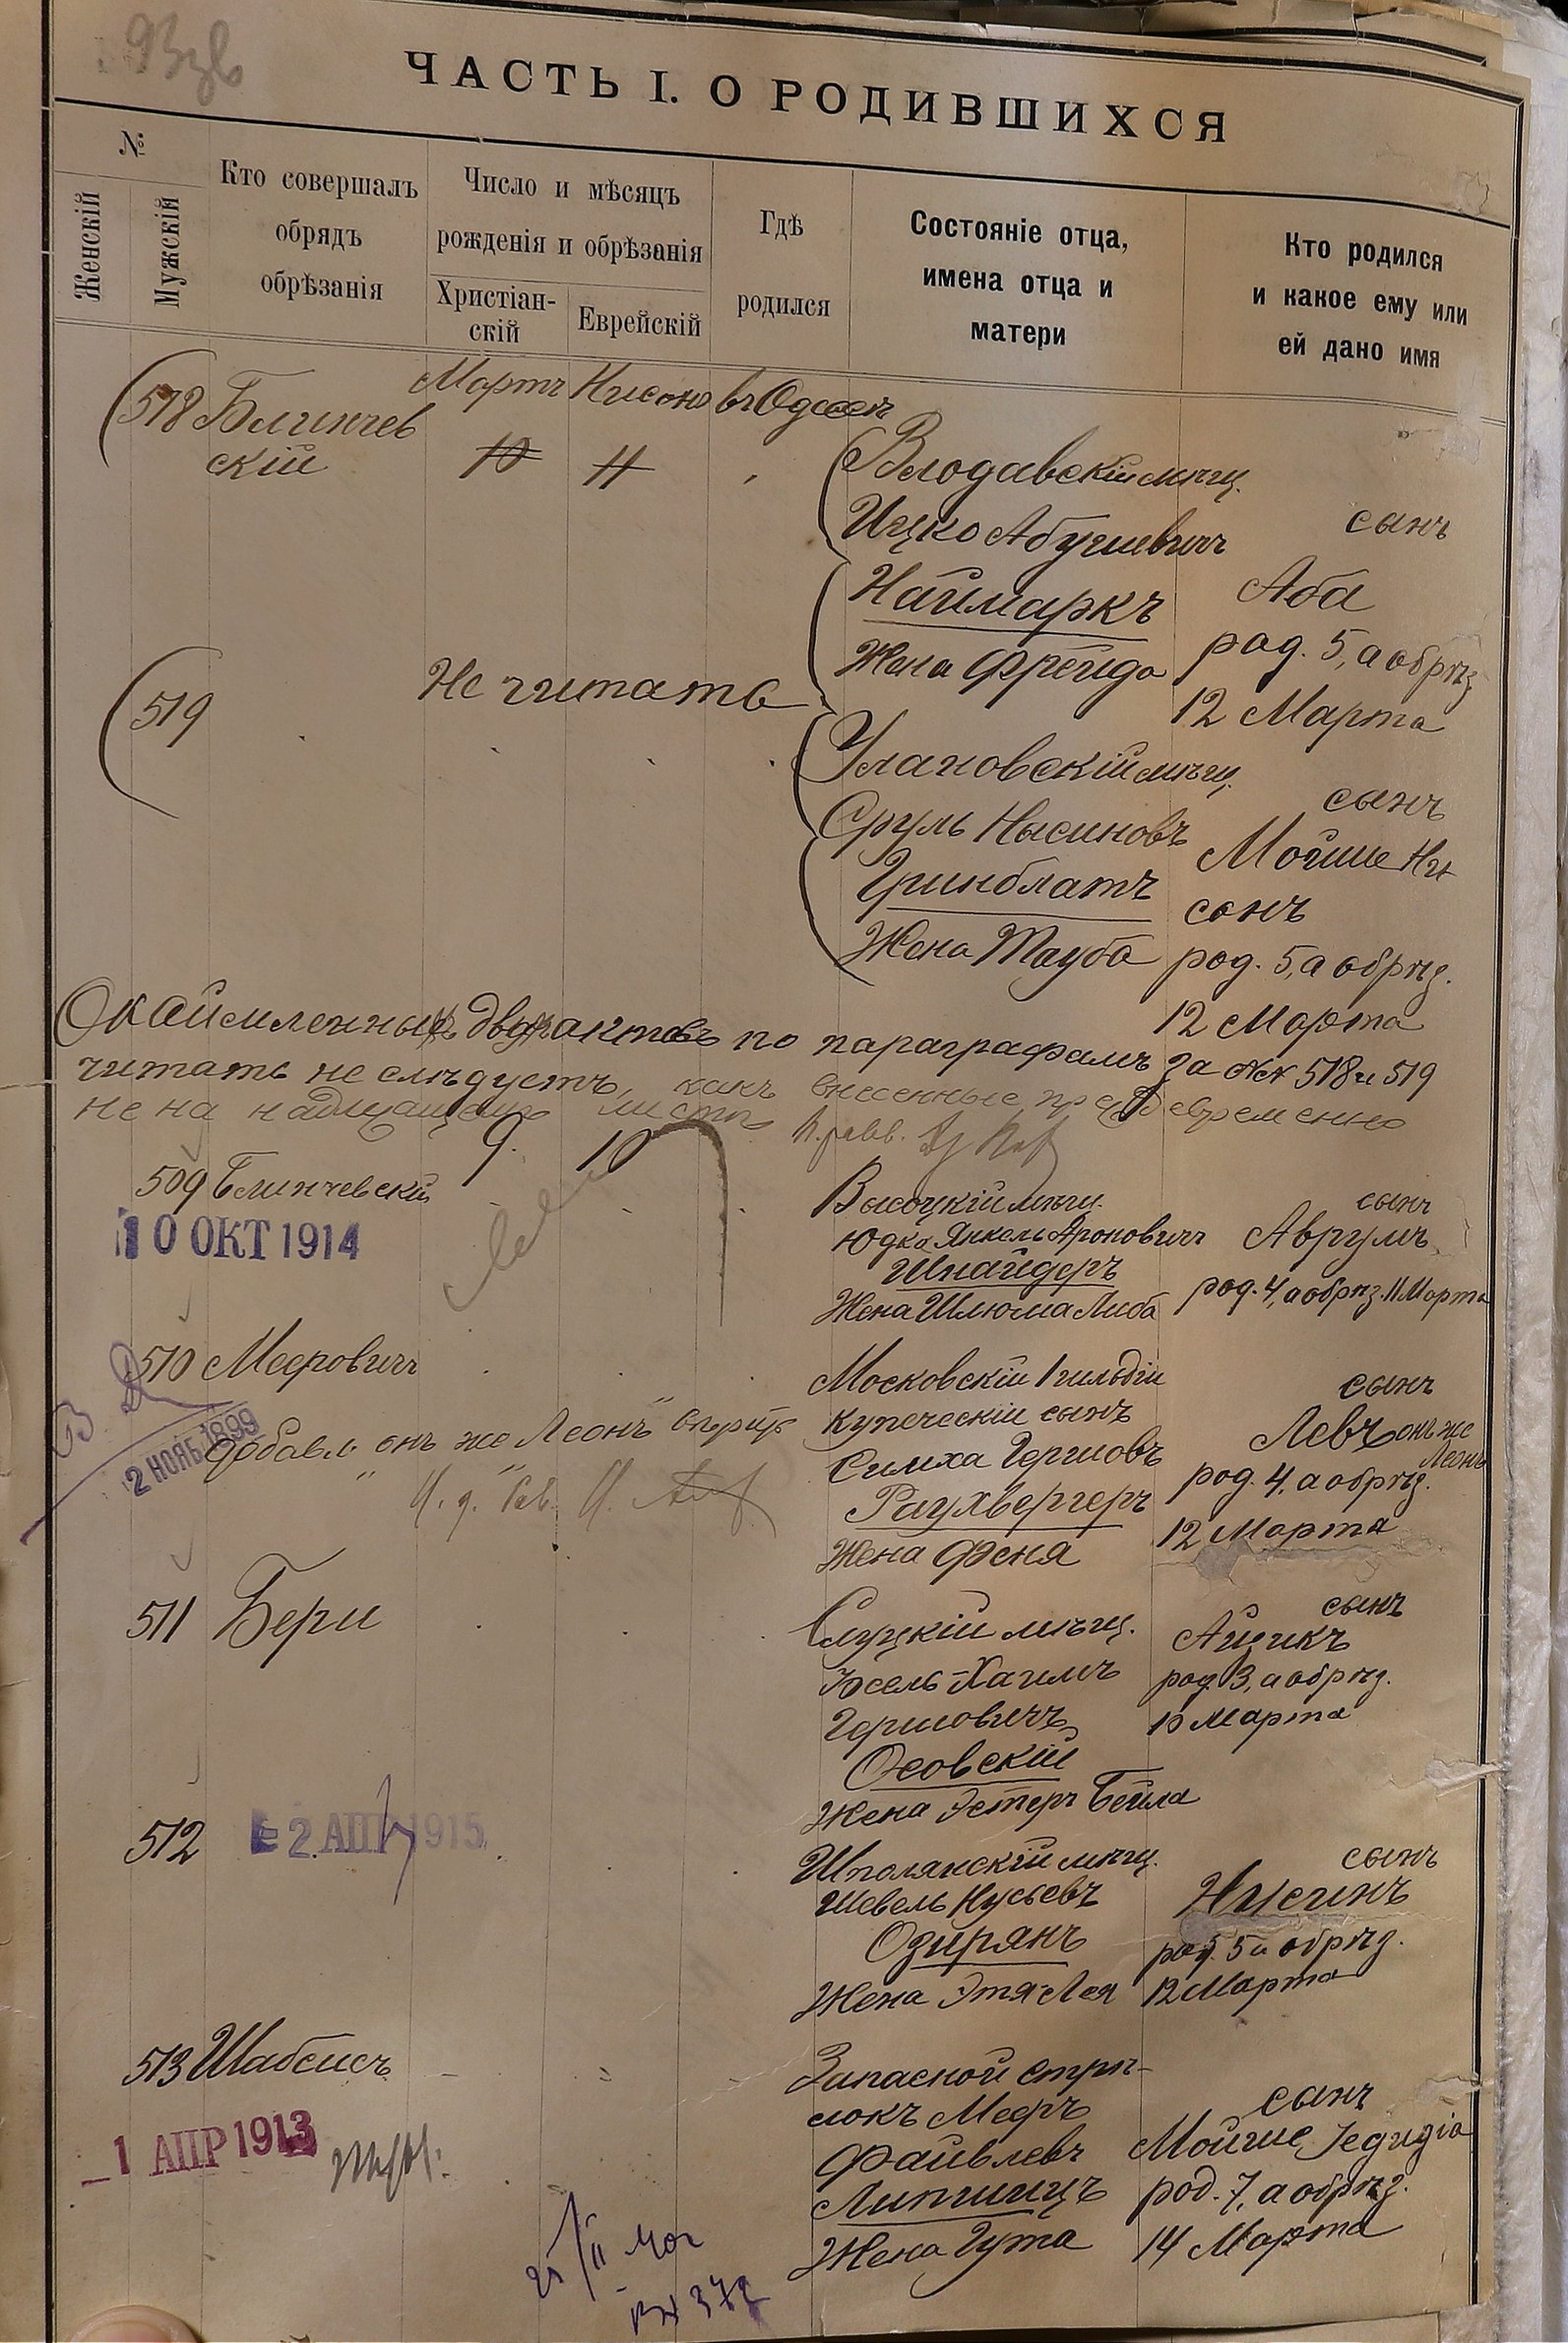 ЧАСТЬ I. О РОДИВШИХСЯ
№
Женскій
Мужскій
Кто совершалъ
обрядъ
обрѣзанія
Число и мѣсяцъ
рожденія и обрѣзанія
Христіан-
скій
Еврейскій
Гдѣ
родился
Состояніе отца,
имена отца и
матери
Кто родился
и какое ему или
ей дано имя
518 Блинчев
скій
Мартъ Нисонъ въ Одессѣ
10 11
Влодавскій мѣщ.
Ицко Абушевичъ
Наймаркъ
Жена Фрейда
сынъ
Аба
род. 5, а обрѣз
12 Марта
519
Не читать
Улановскій мѣщ.
Сруль Нысиновъ
Гринблатъ
Жена Тауба
сынъ
Мойше Ни
сонъ
род. 5, а обрѣз.
12 Марта
по параграфамъ за №№ 518 и 519
читать не слѣдуетъ, какъ внесенные преждевременно
не на надлежащемъ листѣ
9. 10
509 Блинчевскій
10 ОКТ 1914
Высоцкій мѣщ.
Юдка Янкель Ароновичъ
Шнайдеръ
Жена Шлюма Либа
сынъ
Аврумъ
род. 4, а обрѣз. 11 Марта
510 Меровичъ
2 НОЯБ 1899
Добавл. "онъ же Леонъ"
Московскій 1 гильдіи
купеческій сынъ
Симха Гершовъ
Раухвергеръ
Жена Феня
сынъ
Левъ онъ же
Леонъ
род. 4, а обрѣз.
12 Марта
511 Бери
Слуцкій мѣщ.
Іосель-Хаимъ
Гершовичъ
Осовскій
Жена Эстеръ Бейла
сынъ
Айзикъ
род. 3, а обрѣз.
10 Марта
512
2 АПР 1915
Шполянскій мѣщ.
Шевель Нусьевъ
Озирянъ
Жена Этя-Лея
сынъ
Нисинъ
род. 5 а обрѣз.
12 Марта
513 Шабсисъ
1 АПР 1913
Запасной стрѣ-
локъ Меръ
Файвлевъ
Липшицъ
Жена Гута
сынъ
Мойше Іедидіа
род. 7, а обрѣз.
14 Марта